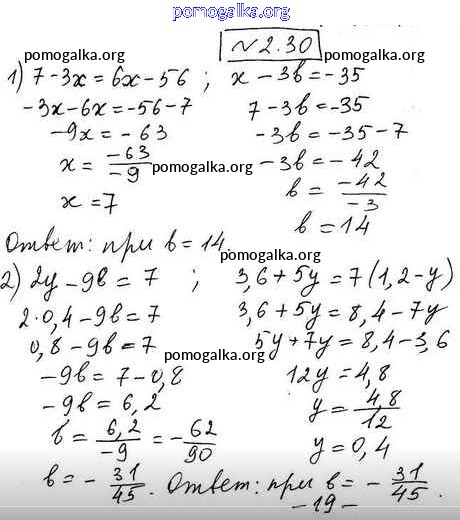 pomogalka.org
№2.30
pomogalka.org pomogalka.org
1) 7-3x=6x-56 ; x-3b=-35
-3x-6x=-56-7 7-3b=-35
-9x=-63 -3b=-35-7
x=-63/-9 pomogalka.org -3b=-42
x=7 b=-42/-3
b=14
Ответ: при b=14.
pomogalka.org
2) 2y-9b=7 ; 3,6+5y=7(1,2-y)
2·0,4-9b=7 3,6+5y=8,4-7y
0,8-9b=7 5y+7y=8,4-3,6
pomogalka.org
-9b=7-0,8 12y=4,8
-9b=6,2 y=4,8/12
b=6,2/-9=-62/90 y=0,4
b=-31/45. Ответ: при b=-31/45.
-19-